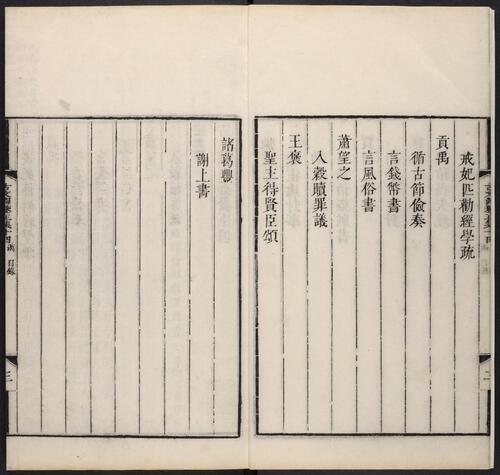 戒妃匹勸經學疏
貢禹
循古節儉奏
言錢幣書
言風俗書
蕭望之
入穀贖罪議
王褒
聖主得賢臣頌
諸葛豐
謝上書
目錄
三